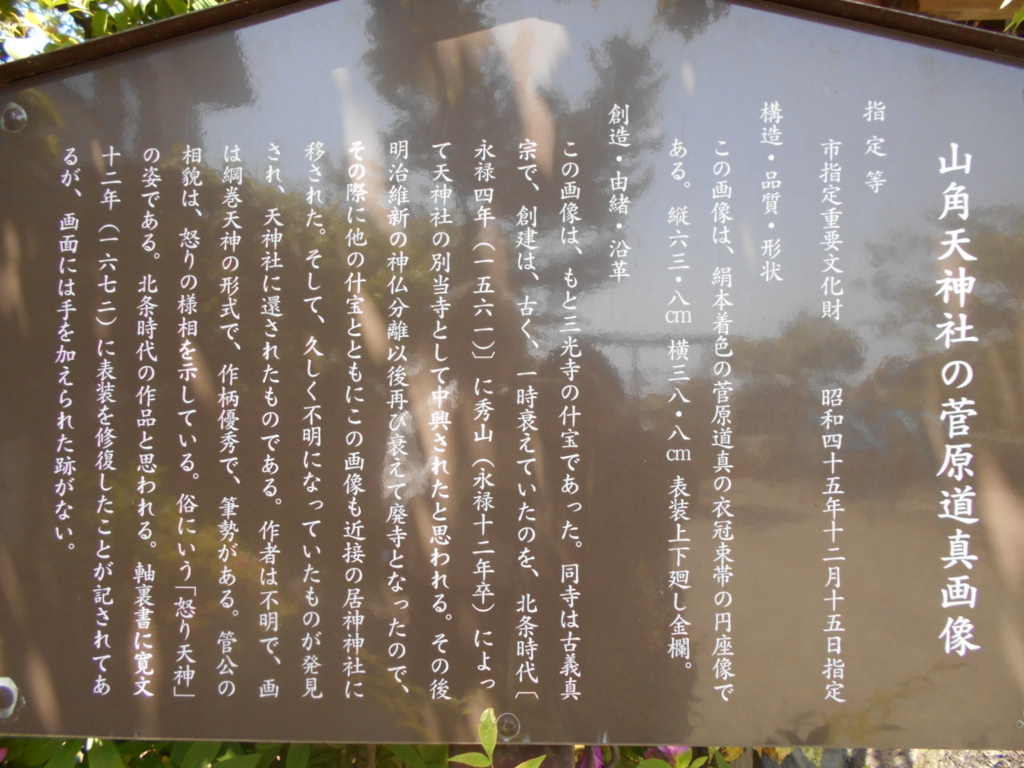 山角天神社の菅原道真画像
指定等
市指定重要文化財　　昭和四十五年十二月十五日指定
構造・品質・形状
この画像は、絹本着色の菅原道真の衣冠束帯の円座像で
ある。　縦六三・八㎝　横三八・八㎝　表装上下廻し金襴。
創造・由緒・沿革
この画像は、もと三光寺の什宝であった。同寺は古義真
宗で、創建は、古く、一時衰えていたのを、北条時代〔
永禄四年（一五六一）〕に秀山（永禄十二年卒）によっ
て天神社の別当寺として中興されたと思われる。その後
明治維新の神仏分離以後再び衰えて廃寺となったので、
その際に他の什宝とともにこの画像も近接の居神神社に
移された。そして、久しく不明になっていたものが発見
され、天神社に還されたものである。作者は不明で、画
は綱巻天神の形式で、作柄優秀で、筆勢がある。管公の
相貌は、怒りの様相を示している。俗にいう「怒り天神」
の姿である。北条時代の作品と思われる。軸裏書に寛文
十二年（一六七二）に表装を修復したことが記されてあ
るが、画面には手を加えられた跡がない。